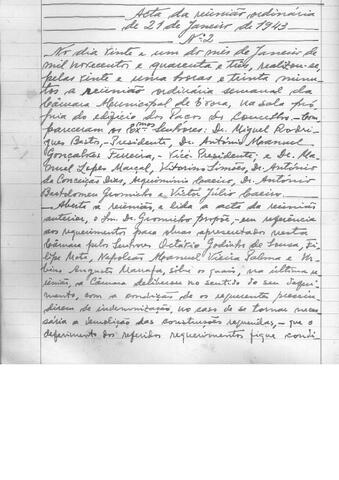 Acta da reunião ordinária
de 21 de Janeiro de 1943
Nº 2
No dia vinte e um do mês de Janeiro de
mil novecentos e quarenta e três, realizou-se,
pelas vinte e uma horas e trinta minu-
tos a reunião ordinária semanal da
Câmara Municipal de Évora, na sala pró-
pria do edifício dos Paços do Concelho - com-
pareceram os Exmos Senhores: Dr. Miguel Rodri-
gues Bastos, - Presidente, Dr. António Manuel
Gonçalves Ferreira, - Vice-Presidente; e Dr. Ma-
nuel Lopes Marçal, Vitorino Simões, Dr. António
da Conceição Dias, Arquimínio Caeiro, Dr. António
Bartolomeu Gromicho e Victor Júlio Caeiro.
Aberta a reunião, e lida a acta da reunião
anterior, o Snr. Dr. Gromicho propôs, - em referência
aos requerimentos para obras apresentados nesta
Câmara pelos Senhores Octávio Godinho de Sousa, Fi-
lipe Mota, Napoleão Manuel Vieira Palma e
Augusto sobre os quais, na última re-
união, a Câmara deliberou no sentido do seu deferi-
mento, com a condição de os requerentes prescin-
direm de indemnização, no caso de se tornar neces-
sária a demolição das construções requeridas, - que o
deferimento dos referidos requerimentos fique condi-